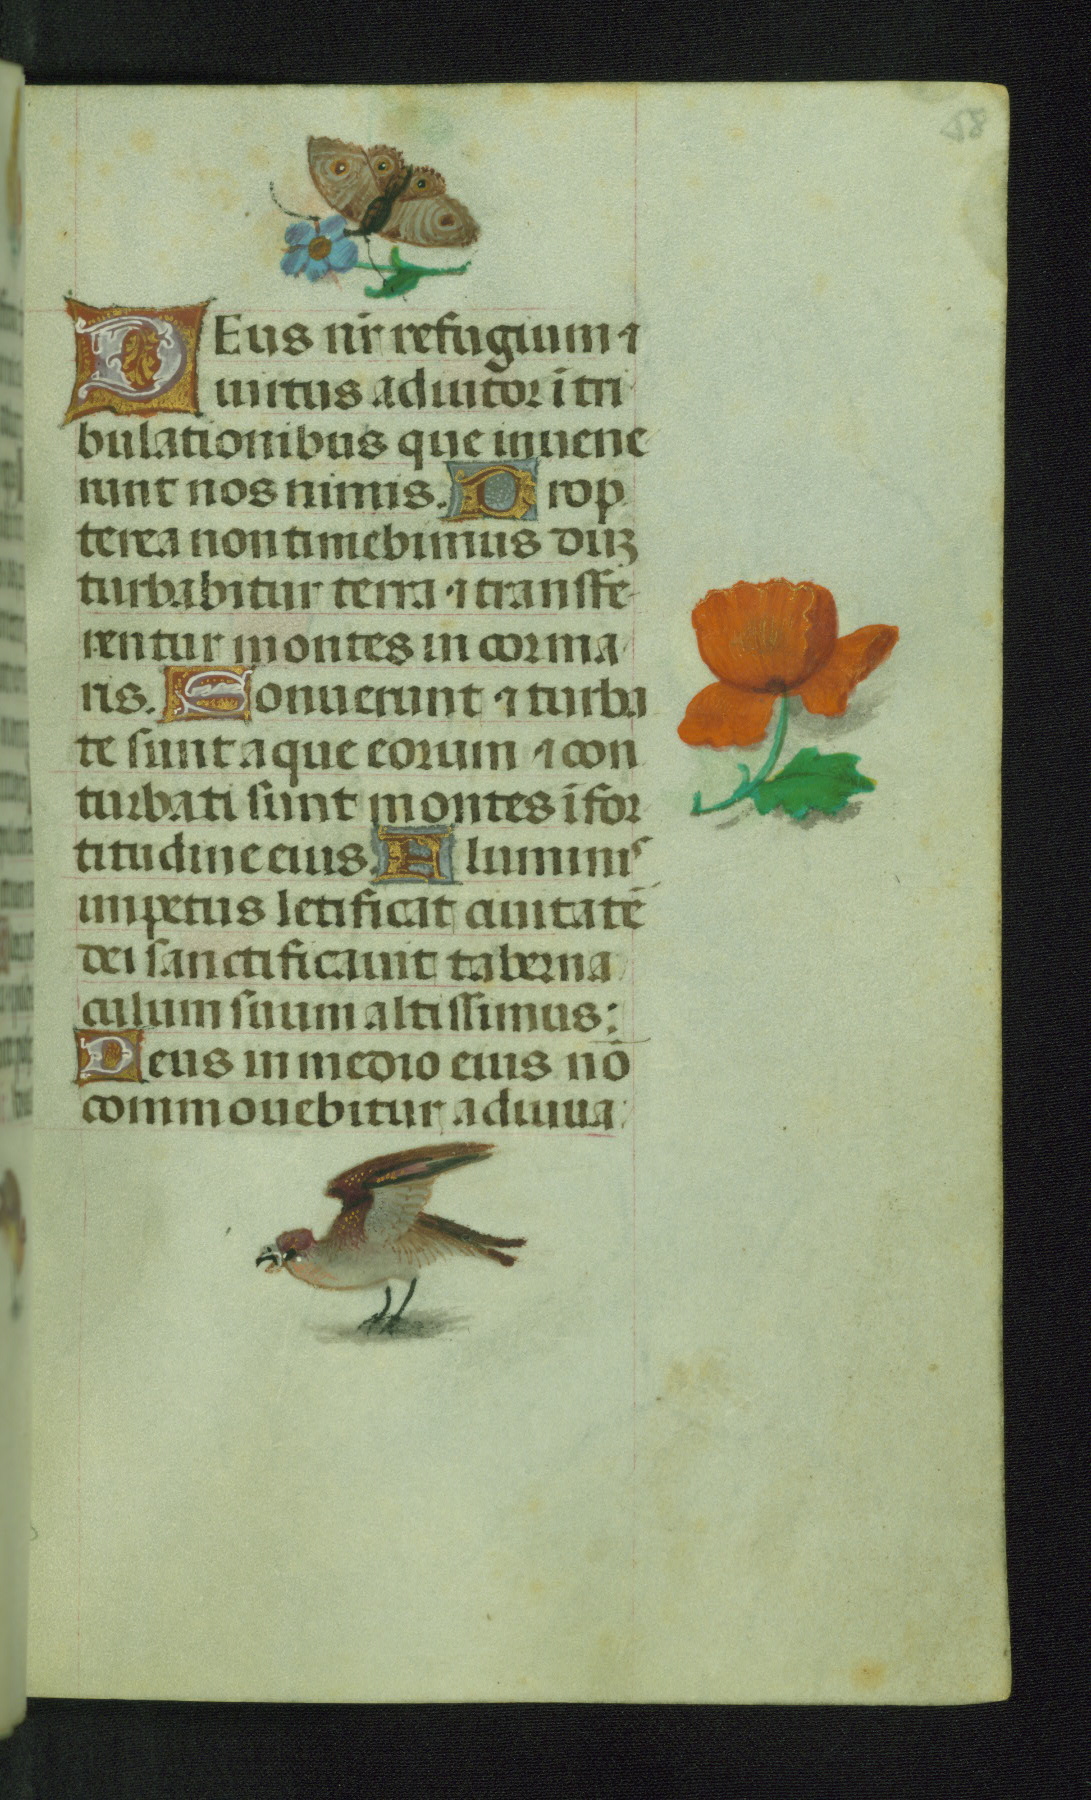 DEus nr̄ refugium ⁊
uirtus adiutor ī tri
bulationibus que inuene
runt nos nimis. Prop
terea non timebimus dūꝫ
turbabitur terra ⁊ transfe-
rentur montes in cor ma
ris. Sonuerunt ⁊ turba
te sunt aque eorum ⁊ con
turbati sunt montes ī for
titudine eius. Fluminis
impetus letificat ciuitatē
dei sanctificauit taberna
culum suum altissimus:
Deus in medio eius nō
commouebitur adiuua